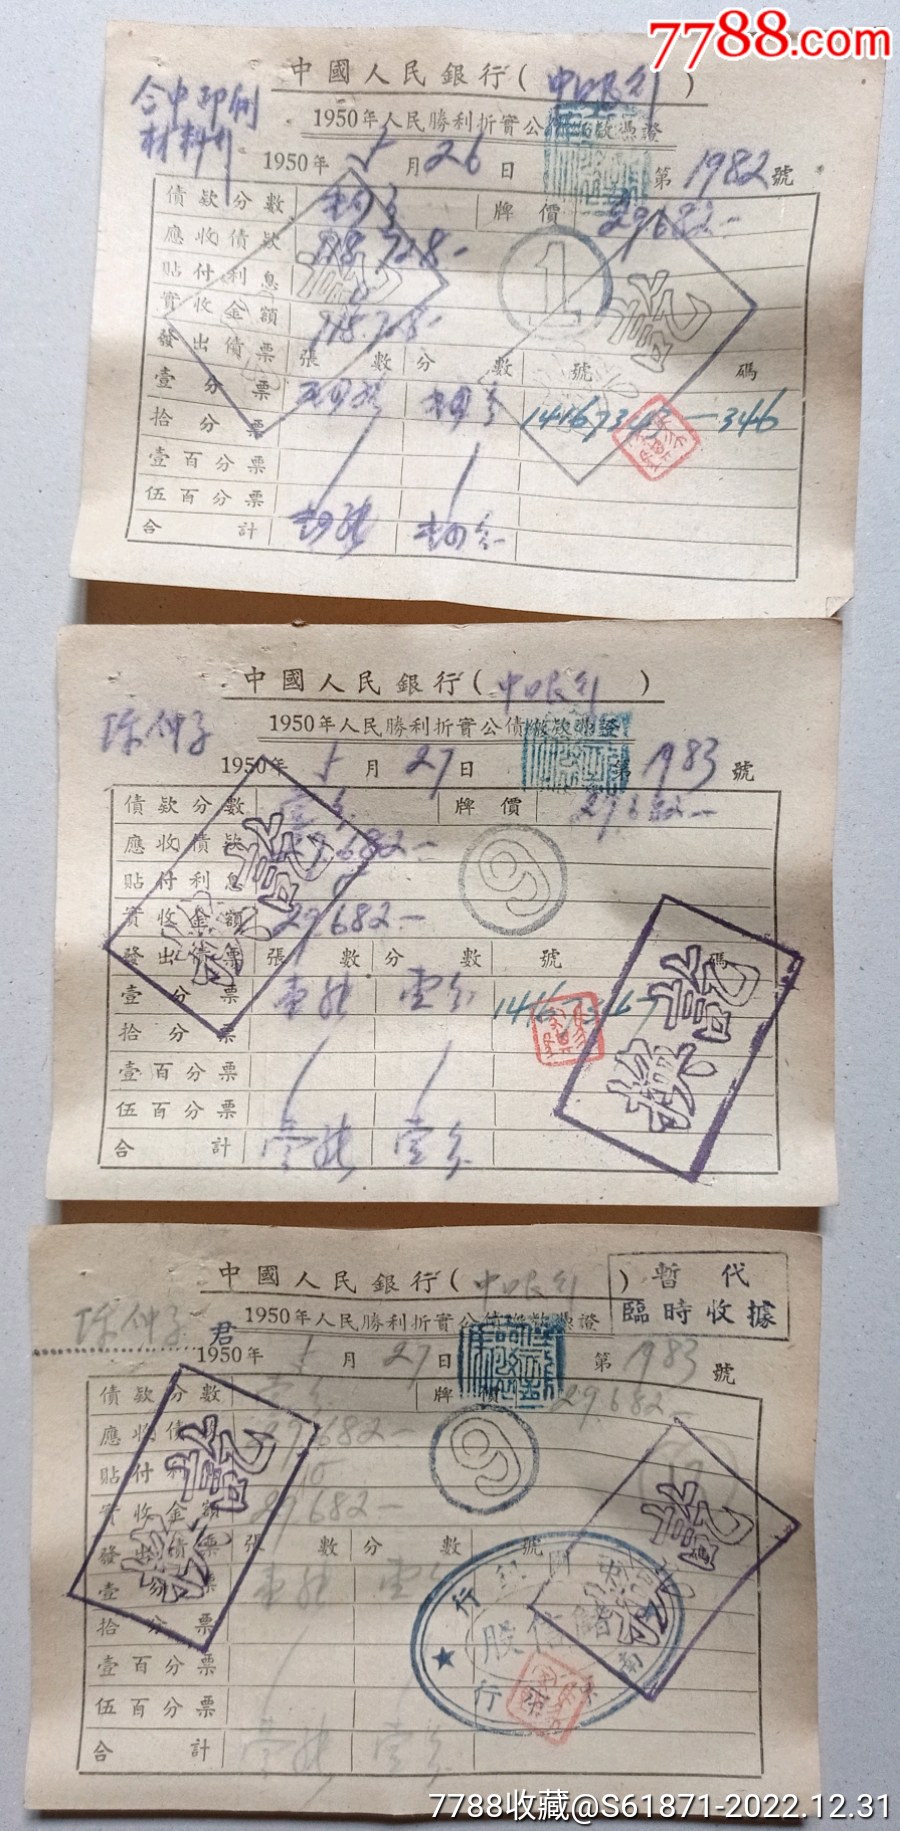 7788.com
中國人民銀行(中银行)
合中印刷
材料
1950年人民勝利折實公債繳款憑證
1950年5月26日 第1982號
債款分數 牌價 29682—
應收債款 118.728—
貼付利息
實收金額 118.728—
發出債票 張數 分數 號碼
壹分票 14167343—346
拾分票
壹百分票
伍百分票
合計
1
換訖
中國人民銀行(中银行)
1950年人民勝利折實公債繳款憑證
陈仲子
1950年5月27日 第1983號
債款分數 壹分 牌價 29682—
應收債款 29682—
貼付利息
實收金額 29682—
發出債票 張數 分數 號碼
壹分票 壹張 壹分
拾分票
壹百分票
伍百分票
合計 壹張 壹分
9
換訖
換訖
中國人民銀行(中银行)
暫代
臨時收據
1950年人民勝利折實公債繳款憑證
陈仲子君
1950年5月27日 第1983號
債款分數 壹分 牌價 29682—
應收債款 29682—
貼付利息
實收金額 29682—
發出債票 張數 分數 號碼
壹分票 壹張 壹分
拾分票
壹百分票
伍百分票
合計 壹張 壹分
9
換訖
換訖
7788收藏@S61871-2022.12.31